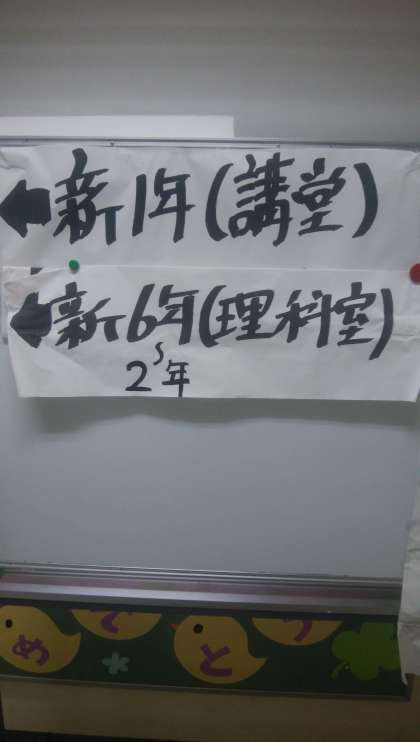 ←新1年(講堂)
←新6年(理科室)
〜2年
おめでとう